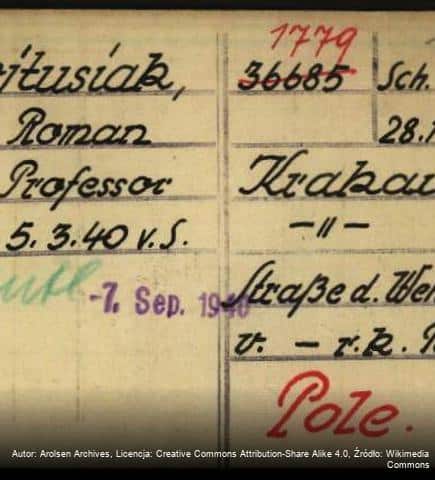 itusiak,
Roman
Professor
5. 3. 40 v. S.
-7. Sep. 1940
1779
36685
Sch.
28.1
Krakau
— 〃 —
Straße d. Weh
v. — r. k.
Pole.
Autor: Arolsen Archives, Licencja: Creative Commons Attribution-Share Alike 4.0, Źródło: Wikimedia
Commons